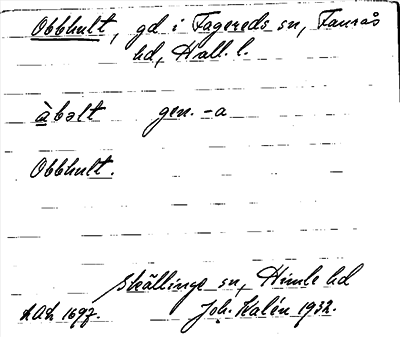 Obbhult, gd i Fagereds sn, Faurås
hd, Hall. l.
àbəlt gen. -a
Obbhult.
Skällinge sn, Himle hd
LAL 1697. Joh. Kalén 1932.